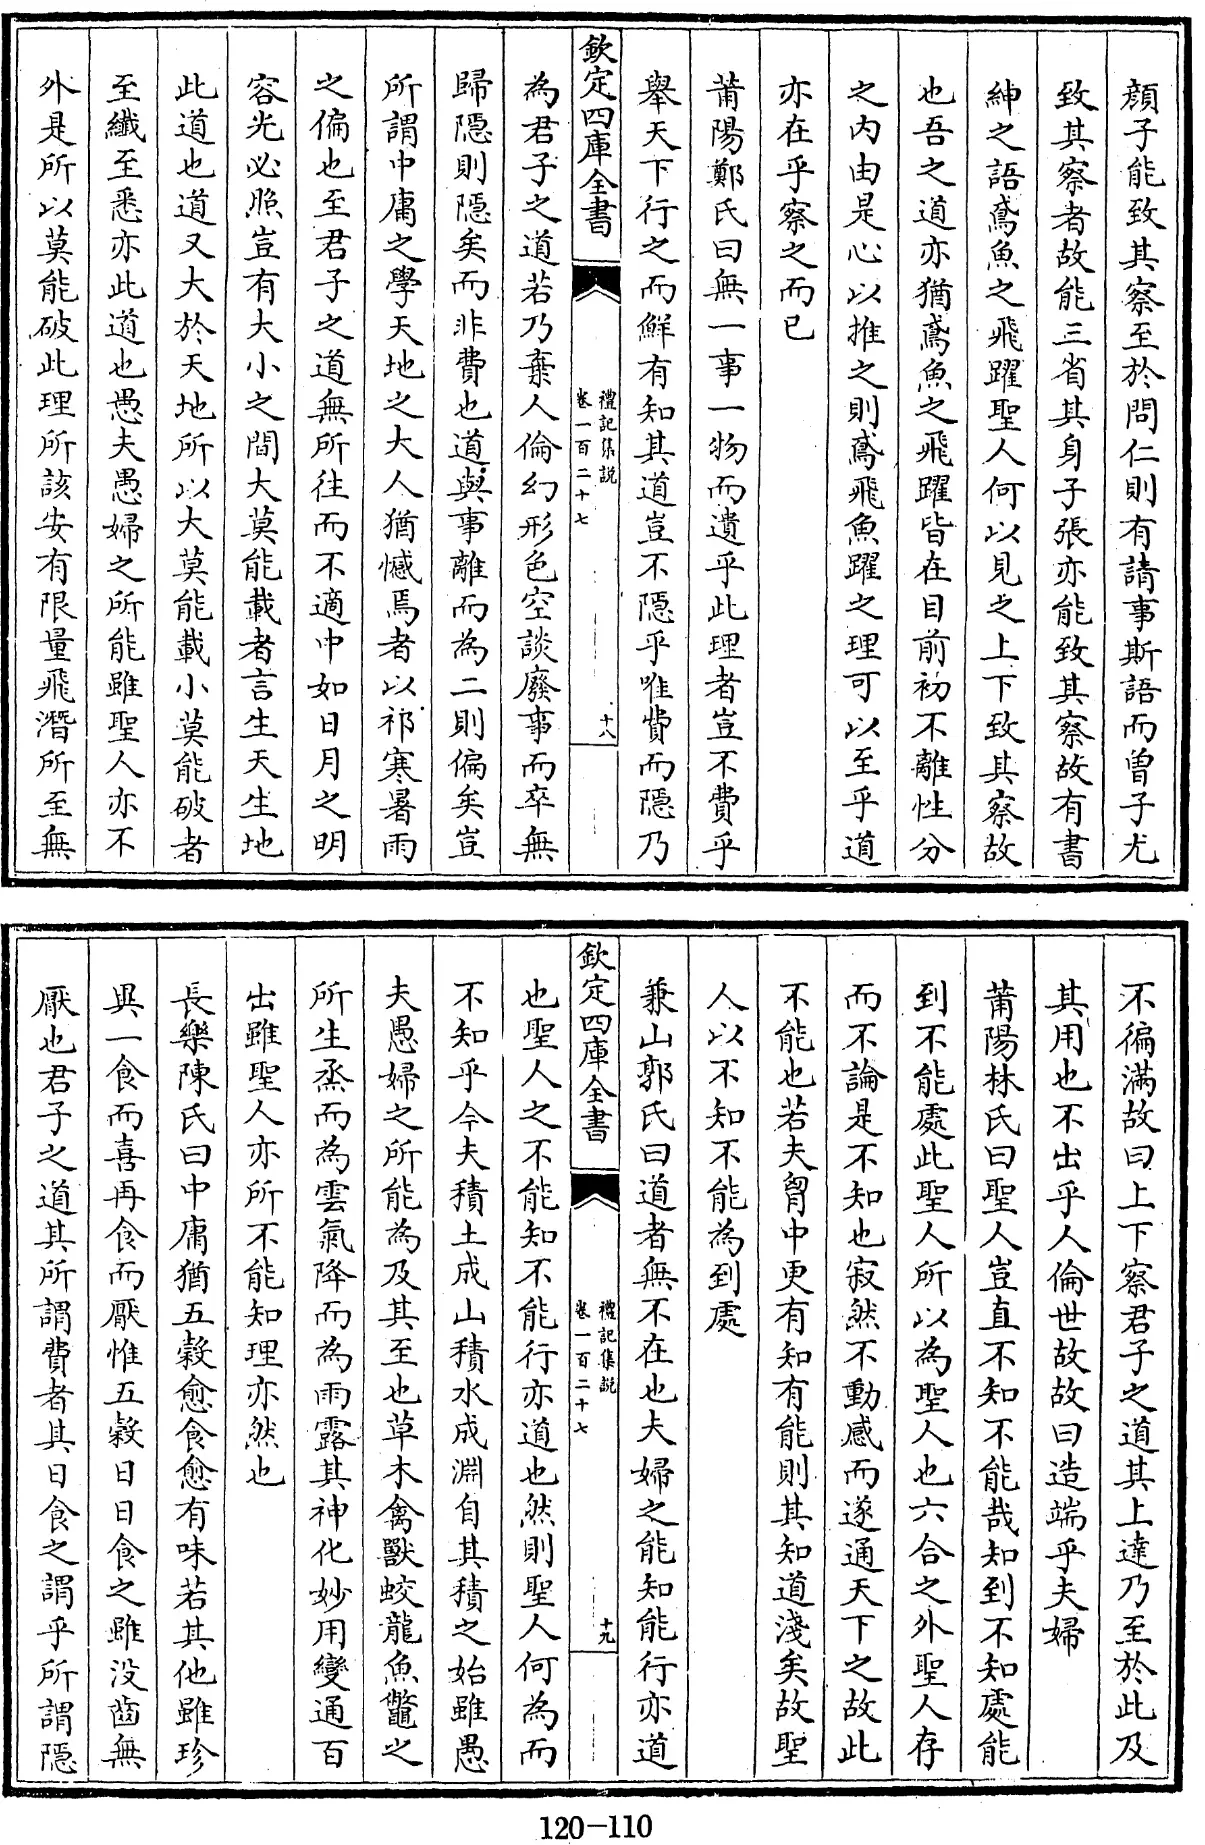 顔子能致其察至於問仁則有請事斯語而曽子尤
致其察者故能三省其身子張亦能致其察故有書
紳之語鳶魚之飛躍聖人何以見之上下致其察故
也吾之道亦猶鳶魚之飛躍皆在目前初不離性分
之内由是心以推之則鳶飛魚躍之理可以至乎道
亦在乎察之而已
莆陽鄭氏曰無一事一物而遺乎此理者豈不費乎
舉天下行之而鮮有知其道豈不隠乎唯費而隠乃
欽定四庫全書
禮記集説
卷一百二十七
十八
為君子之道若乃棄人倫幻形色空談廢事而卒無
歸隠則隠矣而非費也道與事離而為二則偏矣豈
所謂中庸之學天地之大人猶憾焉者以祁寒暑雨
之偏也至君子之道無所往而不適中如日月之明
容光必照豈有大小之間大莫能載者言生天生地
此道也道又大於天地所以大莫能載小莫能破者
至纖至悉亦此道也愚夫愚婦之所能雖聖人亦不
外是所以莫能破此理所該安有限量飛潛所至無
不徧滿故曰上下察君子之道其上達乃至於此及
其用也不出乎人倫世故故曰造端乎夫婦
莆陽林氏曰聖人豈直不知不能哉知到不知處能
到不能處此聖人所以為聖人也六合之外聖人存
而不論是不知也寂然不動感而遂通天下之故此
不能也若夫胷中更有知有能則其知道淺矣故聖
人以不知不能為到處
兼山郭氏曰道者無不在也夫婦之能知能行亦道
欽定四庫全書
禮記集説
卷一百二十七
十九
也聖人之不能知不能行亦道也然則聖人何為而
不知乎今夫積土成山積水成淵自其積之始雖愚
夫愚婦之所能為及其至也草木禽獸蛟龍魚鼈之
所生烝而為雲氣降而為雨露其神化妙用變通百
出雖聖人亦所不能知理亦然也
長樂陳氏曰中庸猶五穀愈食愈有味若其他雖珍
異一食而喜再食而厭惟五穀日日食之雖没齒無
厭也君子之道其所謂費者其日食之謂乎所謂隠
120-110